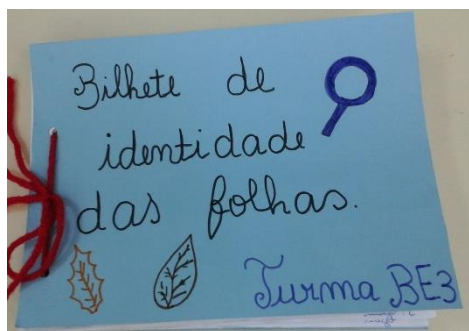 Bilhete de
identidade
das folhas.
Turma BE3